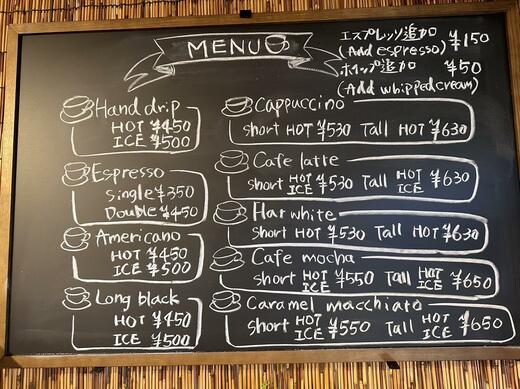 MENU
エスプレッソ追加
(Add espresso) ¥150
ホイップ追加 ¥50
(Add whipped cream)
Hand drip
HOT ¥450
ICE ¥500
Espresso
Single ¥350
Double ¥450
Americano
HOT ¥450
ICE ¥500
Long black
HOT ¥450
ICE ¥500
Cappuccino
short HOT ¥530 Tall HOT ¥630
Cafe latte
short HOT ICE ¥530 Tall HOT ICE ¥630
Flat white
short HOT ¥530 Tall HOT ¥630
Cafe mocha
short HOT ICE ¥550 Tall HOT ICE ¥650
Caramel macchiato
short HOT ICE ¥550 Tall HOT ICE ¥650